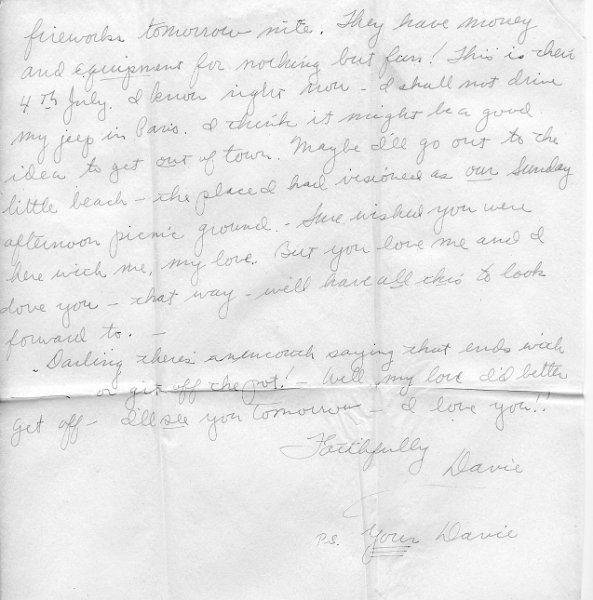 fireworks tomorrow nite. They have money
and equipment for nothing but fun! This is their
4th July. I know right now - I shall not drive
my jeep in Paris. I think it might be a good
idea to get out of town. Maybe I'll go out to the
little beach - the place I had visioned as our Sunday
afternoon picnic ground. - Sure wished you were
here with me, my love. But you love me and I
love you - that way - we'll have all this to look
forward to. -
Darling there's an uncouth saying that ends with
or git off the pot! - Well, my love I'd better
get off - I'll see you tomorrow - I love you!!
Faithfully
Davie
P.S. Your Davie